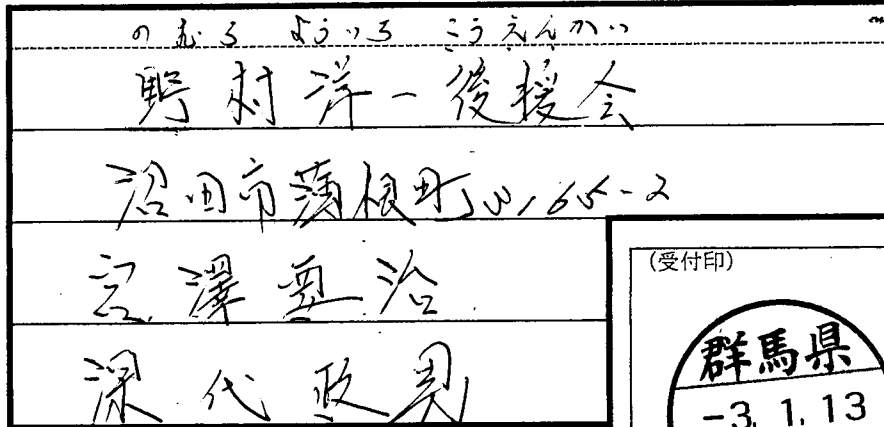 のむら よういち こうえんかい
野村洋一後援会
沼田市薄根町3165-2
宮澤 治
深代政
(受付印)
群馬県
-3. 1. 13